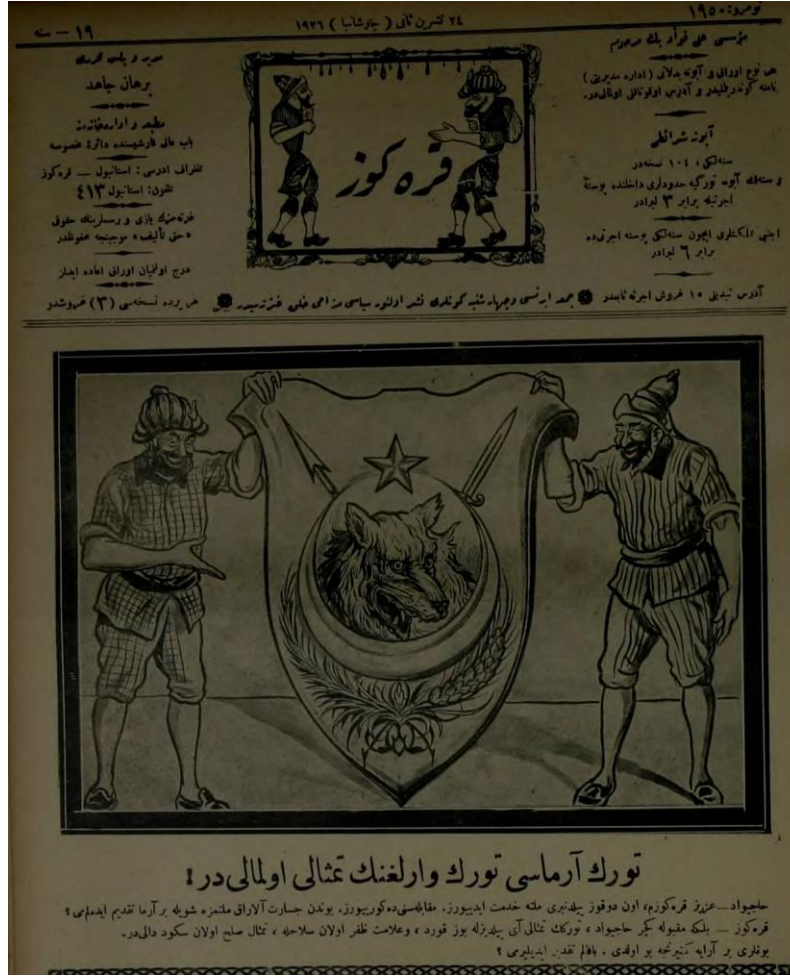 نومرو: ١٩٥٠
٢٤ تشرین ثانی ( چارشانبا ) ١٩٢٦
١٩ — سنه
مؤسسی علی فؤاد بك مرحوم
هر نوع اوراق و آبونه بدلاتی ( اداره مدیریتی )
نامنه کوندرملیدر و آدرس اولونمالی در.
آبونه شرائطی
سنه‌لکی ، ١٠٤ نسخه‌در
و سنه‌لك آبونه تورکیه حدودلری داخلنده پوسته
اجرتیله برابر ٣ لیرادر
اجنبی مملکتلری ایچون سنه‌لکی پوسته اجرتی‌ده
برابر ٦ لیرادر
قره کوز
مدیر و باش محرری
برهان جاهد
مطبعه و اداره‌خانه‌سی
باب عالی قارشیسنده دائرهٔ مخصوصه
تلغراف آدرسی : استانبول — قره‌کوز
تلفون: استانبول ٤١٣
غزته‌منك یازی و رسملرینك حقوقی
«حق تألیف» موجبنجه محفوظدر
درج اولنمیان اوراق اعاده ایدلمز
آدرس تبدیلی ١٥ غروش اجرته تابعدر
جمعه ایرتسی وچهارشنبه کونلری نشر اولنور سیاسی مزاحی خلق غزته‌سیدر
هر یرده نسخه‌سی (٣) غروشدر
تورك آرماسی تورك وارلغنك تمثالی اولمالی در!
حاجیواد — عزیز قره‌کوزم، اون دوقوز ییلدنبری ملته خدمت ایدییورز. مقابله‌سنی‌ده کورییورز. بوندن جسارت آلاراق ملتمزه شویله بر آرما تقدیم ایده‌لم‌می؟
قره‌کوز — بلکه مقبوله کچر حاجیواد ، تورکك تمثالی آی ییلدیزله بوز قورد ، وعلامت ظفر اولان سلاحله ، تمثال صلح اولان سکود دالی‌در.
بونلری بر آرایه کتیرنجه بو اولدی . باقالم تقدیر ایدیلیرمی ؟